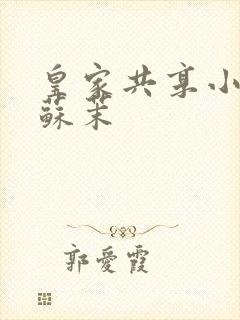 皇家共享小
蘇茉
郭愛霞